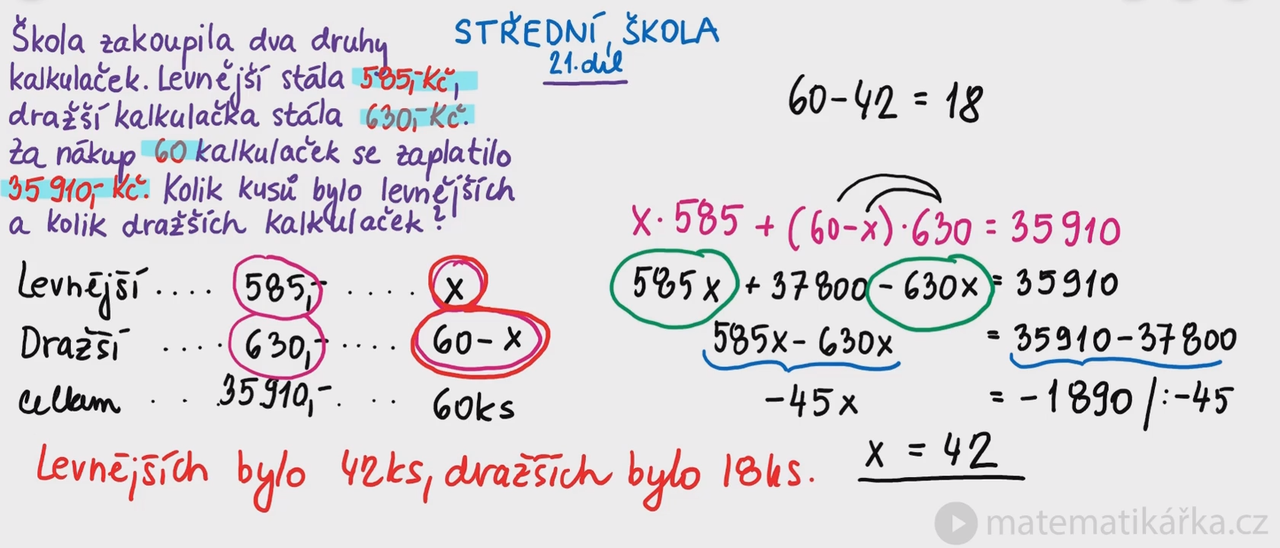 Škola zakoupila dva druhy
kalkulaček. Levnější stála 585,-Kč,
dražší kalkulačka stála 630,-Kč.
Za nákup 60 kalkulaček se zaplatilo
35 910,- Kč. Kolik kusů bylo levnějších
a kolik dražších kalkulaček?
STŘEDNÍ ŠKOLA
21. díl
60 - 42 = 18
x · 585 + (60 - x) · 630 = 35 910
585x + 37800 - 630x = 35910
585x - 630x = 35910 - 37800
-45x = -1890 /: -45
x = 42
Levnější .... 585,- .... x
Dražší .... 630,- .... 60 - x
celkem .. 35 910,- ... 60ks
Levnějších bylo 42ks, dražších bylo 18ks.
matematikářka.cz